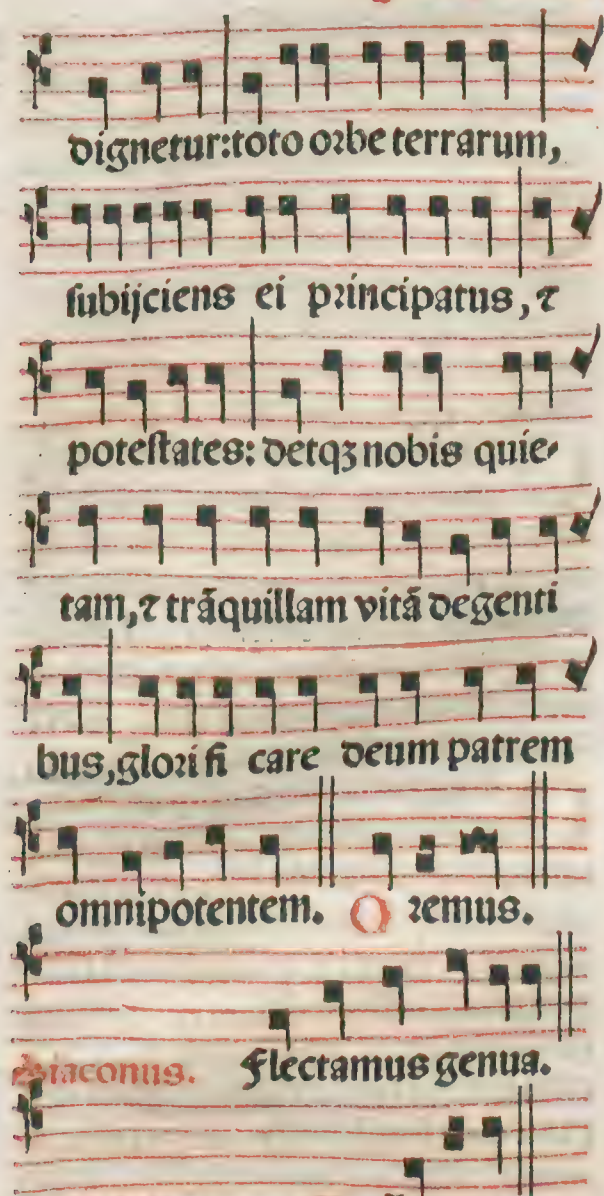 dignetur:toto orbe terrarum,
subijciens ei principatus, ⁊
potestates: detqꝫ nobis quie⸗
tam,⁊ trãquillam vitã degenti
bus,glorifi care deum patrem
omnipotentem. Oremus.
Diaconus. Flectamus genua.